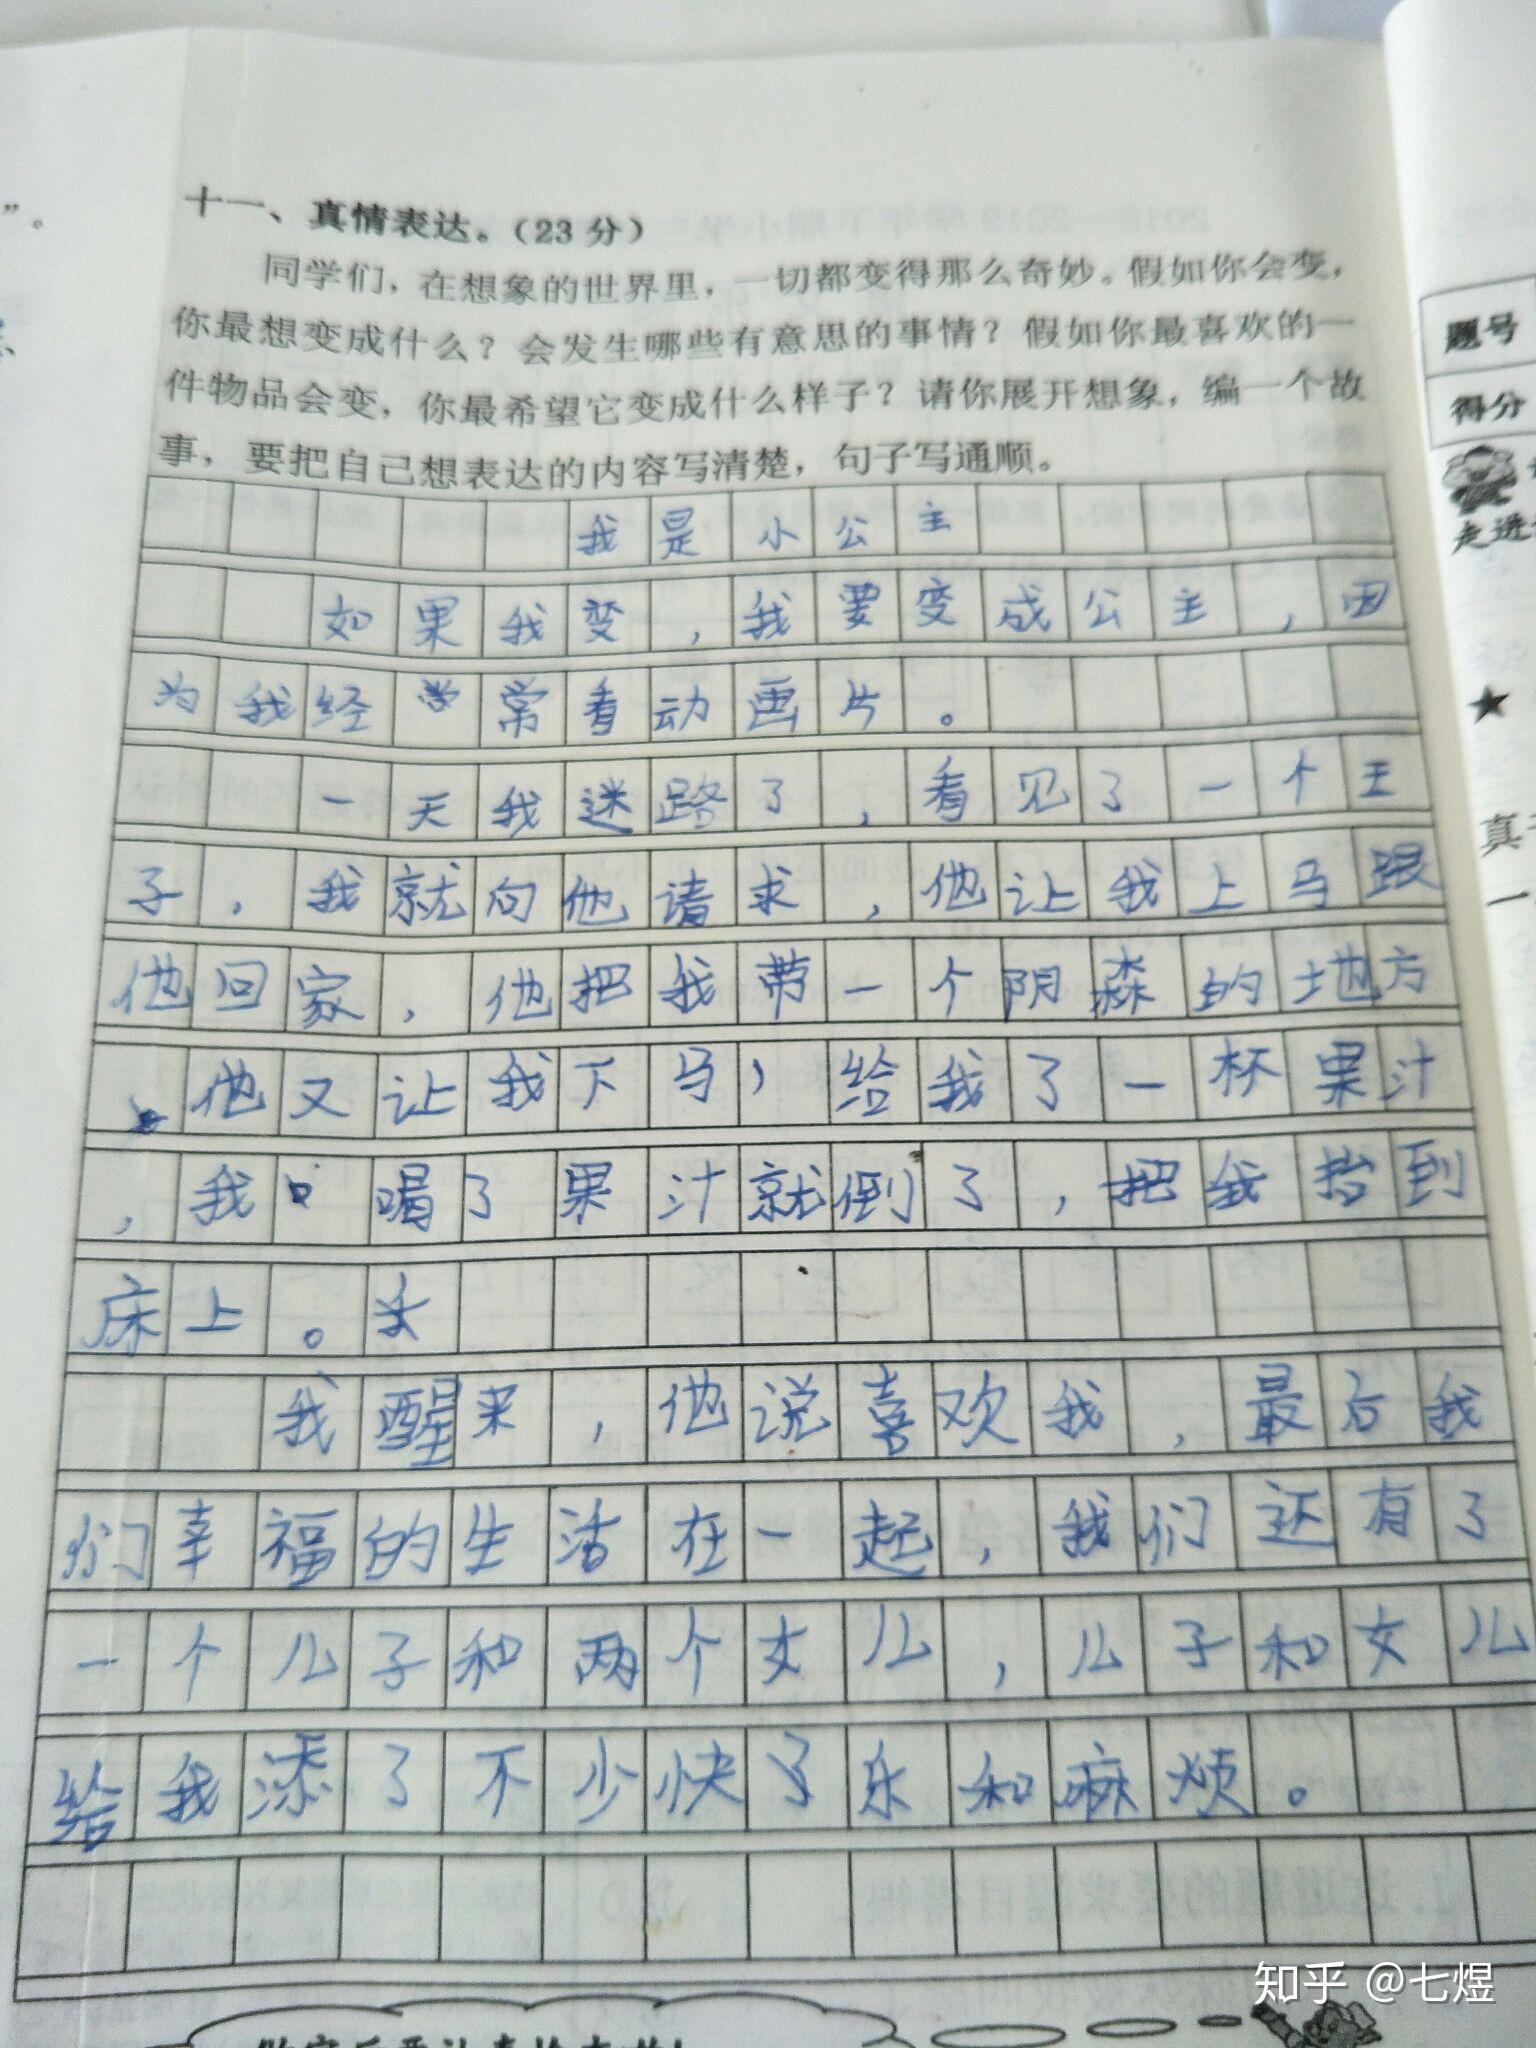 ”。
十一、真情表达。(23分)
同学们,在想象的世界里,一切都变得那么奇妙。假如你会变,
你最想变成什么?会发生哪些有意思的事情?假如你最喜欢的一
件物品会变,你最希望它变成什么样子?请你展开想象,编一个故
事,要把自己想表达的内容写清楚,句子写通顺。
我是小公主
如果我变,我要变成公主,因
为我经常看动画片。
一天我迷路了,看见了一个王
子,我就向他请求,他让我上马跟
他回家,他把我带一个阴森的地方
他又让我下马,给我了一杯果汁
,我喝了果汁就倒了,把我抬到
床上。
我醒来,他说喜欢我,最后我
们幸福的生活在一起,我们还有了
一个儿子和两个女儿,儿子和女儿
给我添了不少快了乐和麻烦。
题号
得分
走进
★
真
一
知乎 @七煜